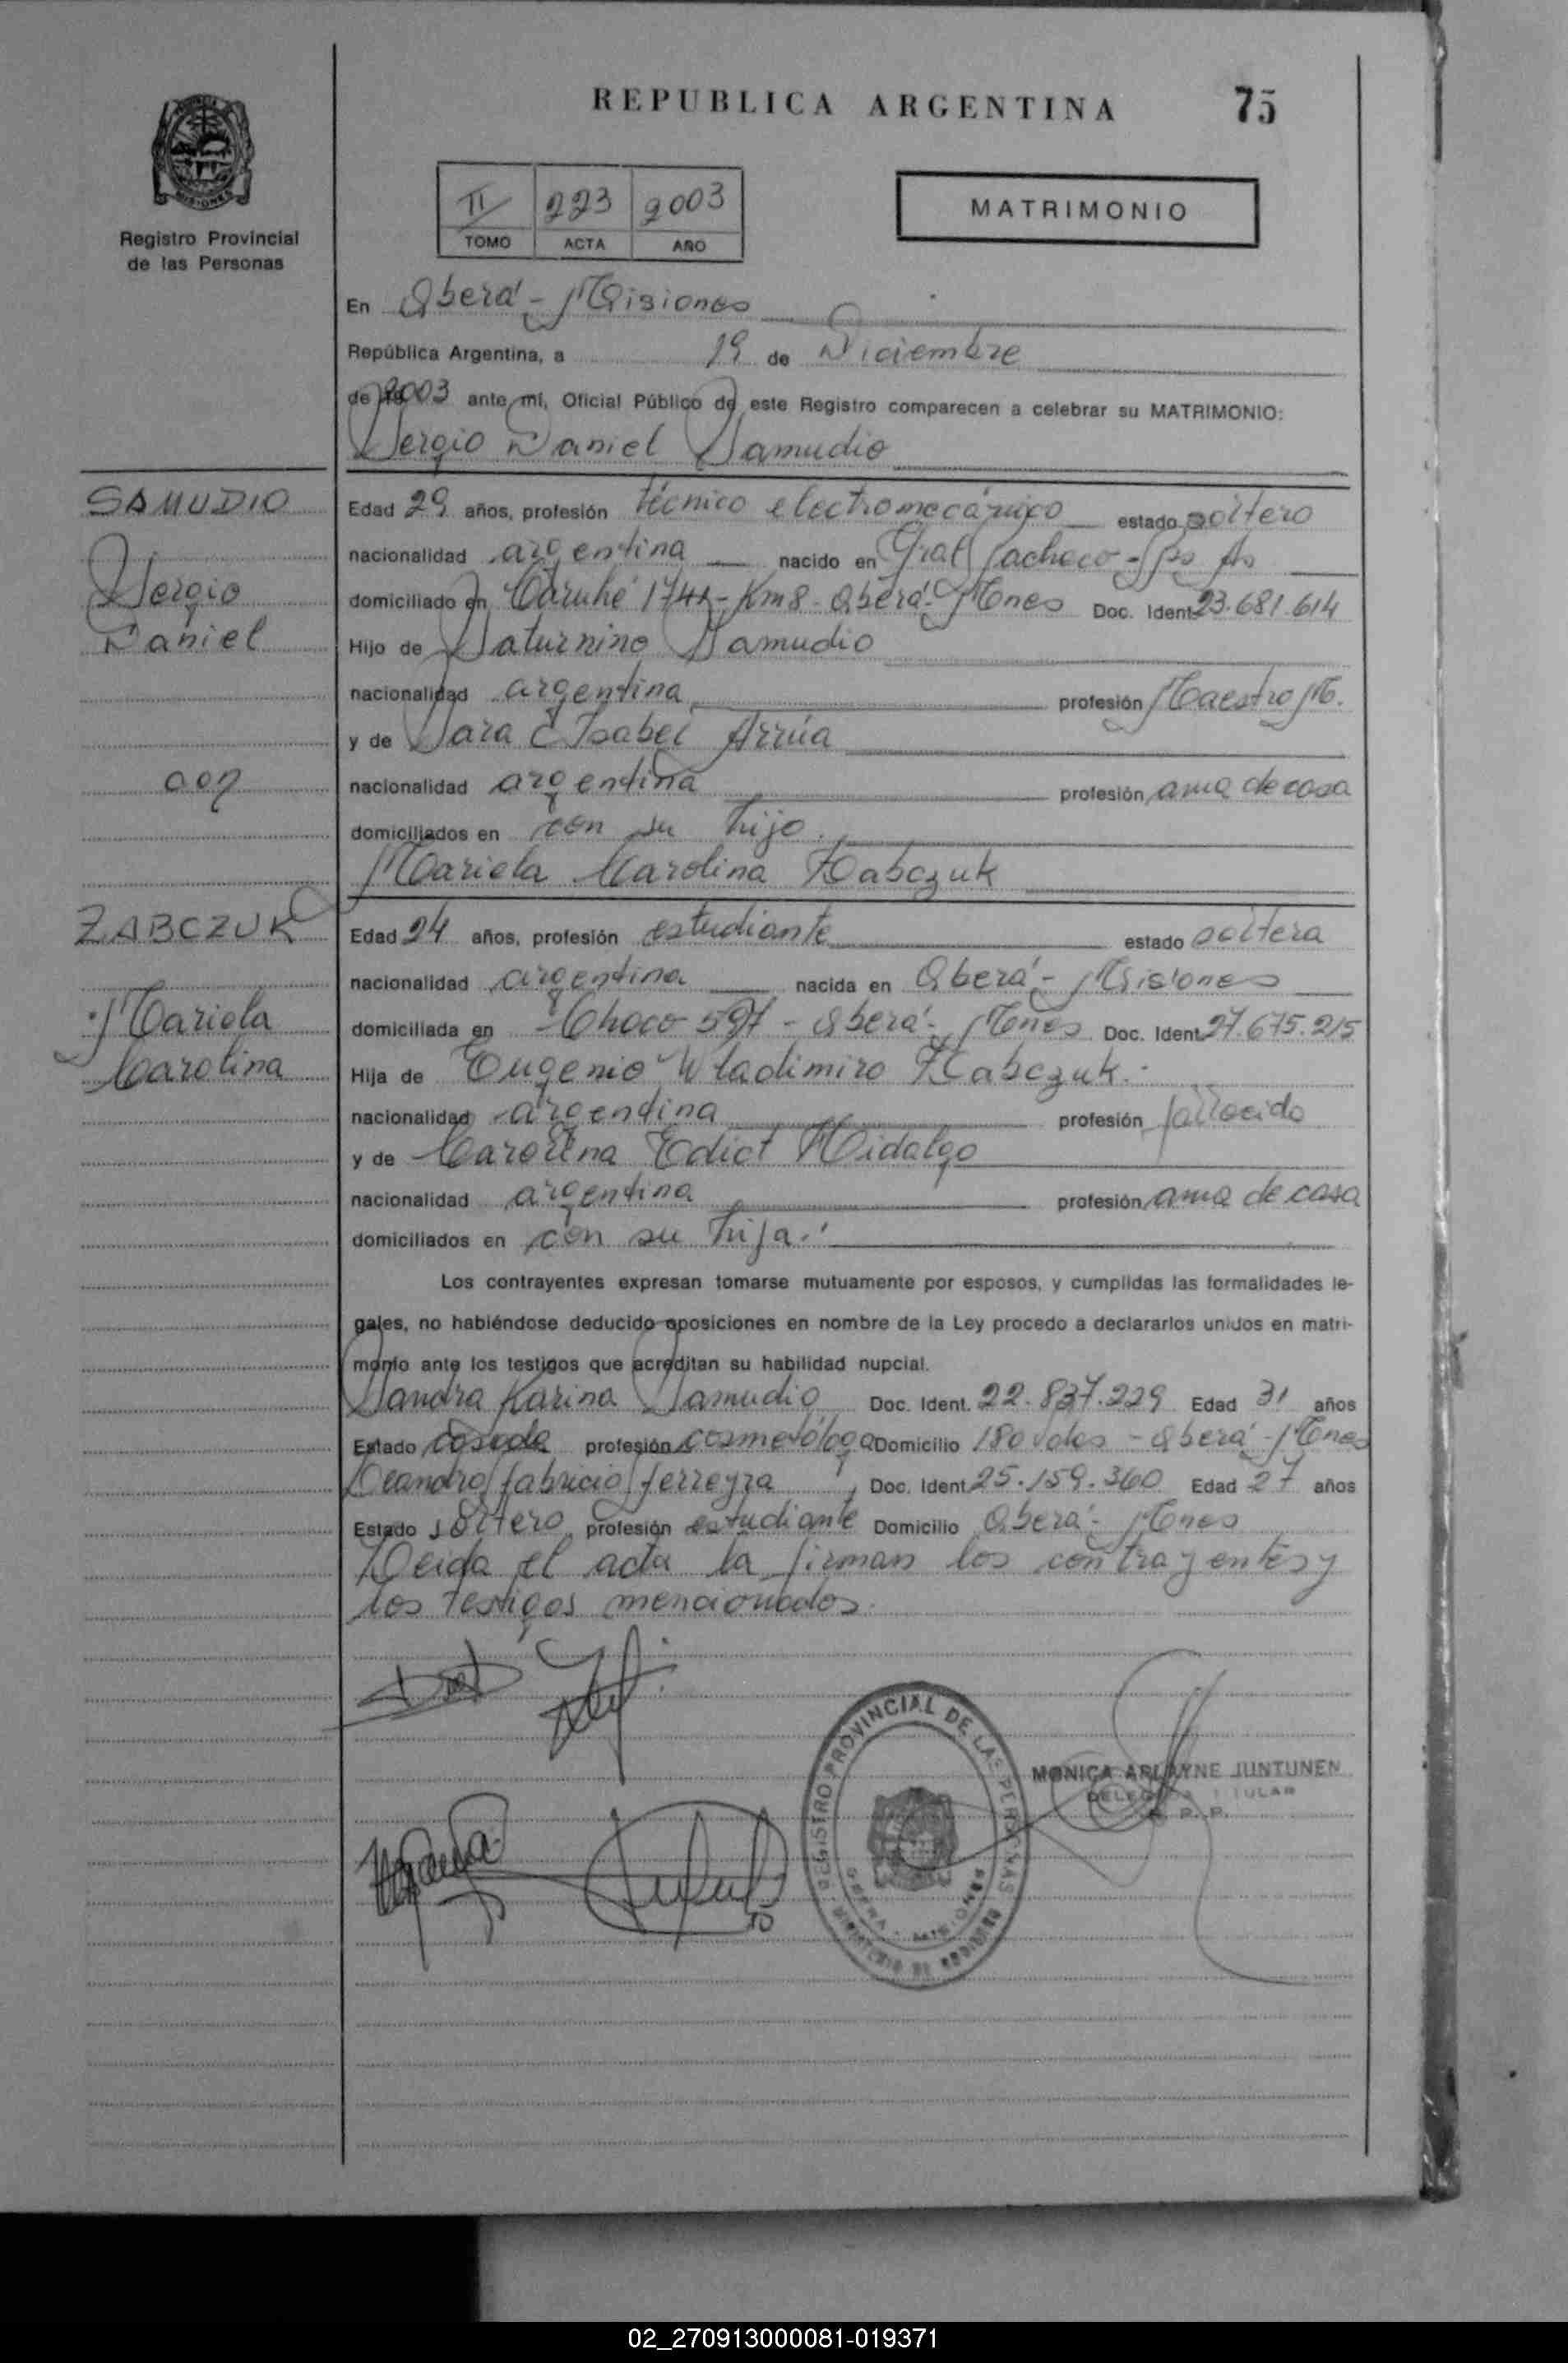 REPUBLICA ARGENTINA
75
MISIONES
Registro Provincial
de las Personas
II 223 2003
TOMO ACTA AÑO
MATRIMONIO
En Oberá - Misiones
República Argentina, a 19 de Diciembre
de 2003 ante mí, Oficial Público de este Registro comparecen a celebrar su MATRIMONIO:
Sergio Daniel Samudio
SAMUDIO
Sergio
Daniel
con
Edad 29 años, profesión técnico electromecánico estado soltero
nacionalidad argentina nacido en Gral Pacheco - Bs As
domiciliado en Caruhé 174 - Km 8 - Oberá - Mnes Doc. Ident. 23.681.614
Hijo de Saturnino Samudio
nacionalidad argentina profesión Maestro M.
y de Sara Isabel Arrúa
nacionalidad argentina profesión ama de casa
domiciliados en con su hijo.
Mariela Carolina Zabczuk
ZABCZUK
Mariela
Carolina
Edad 24 años, profesión estudiante estado soltera
nacionalidad argentina nacida en Oberá - Misiones
domiciliada en Chaco 597 - Oberá - Mnes Doc. Ident. 27.675.215
Hija de Eugenio Wladimiro Zabczuk.
nacionalidad argentina profesión fallecido
y de Carolina Edict Hidalgo
nacionalidad argentina profesión ama de casa
domiciliados en con su hija.
Los contrayentes expresan tomarse mutuamente por esposos, y cumplidas las formalidades le-
gales, no habiéndose deducido oposiciones en nombre de la Ley procedo a declararlos unidos en matri-
monio ante los testigos que acreditan su habilidad nupcial.
Sandra Karina Samudio Doc. Ident. 22.837.229 Edad 31 años
Estado casada profesión cosmetóloga Domicilio 180 vdas - Oberá - Mnes
Leandro Fabricio Ferreyra, Doc. Ident. 25.159.360 Edad 27 años
Estado soltero profesión estudiante Domicilio Oberá - Mnes
Leida el acta la firman los contrayentes y
los testigos mencionados.
REGISTRO PROVINCIAL DE LAS PERSONAS
MISIONES
MONICA ARLAYNE JUNTUNEN
DELEGADA TITULAR
R. P. P.
02_270913000081-019371